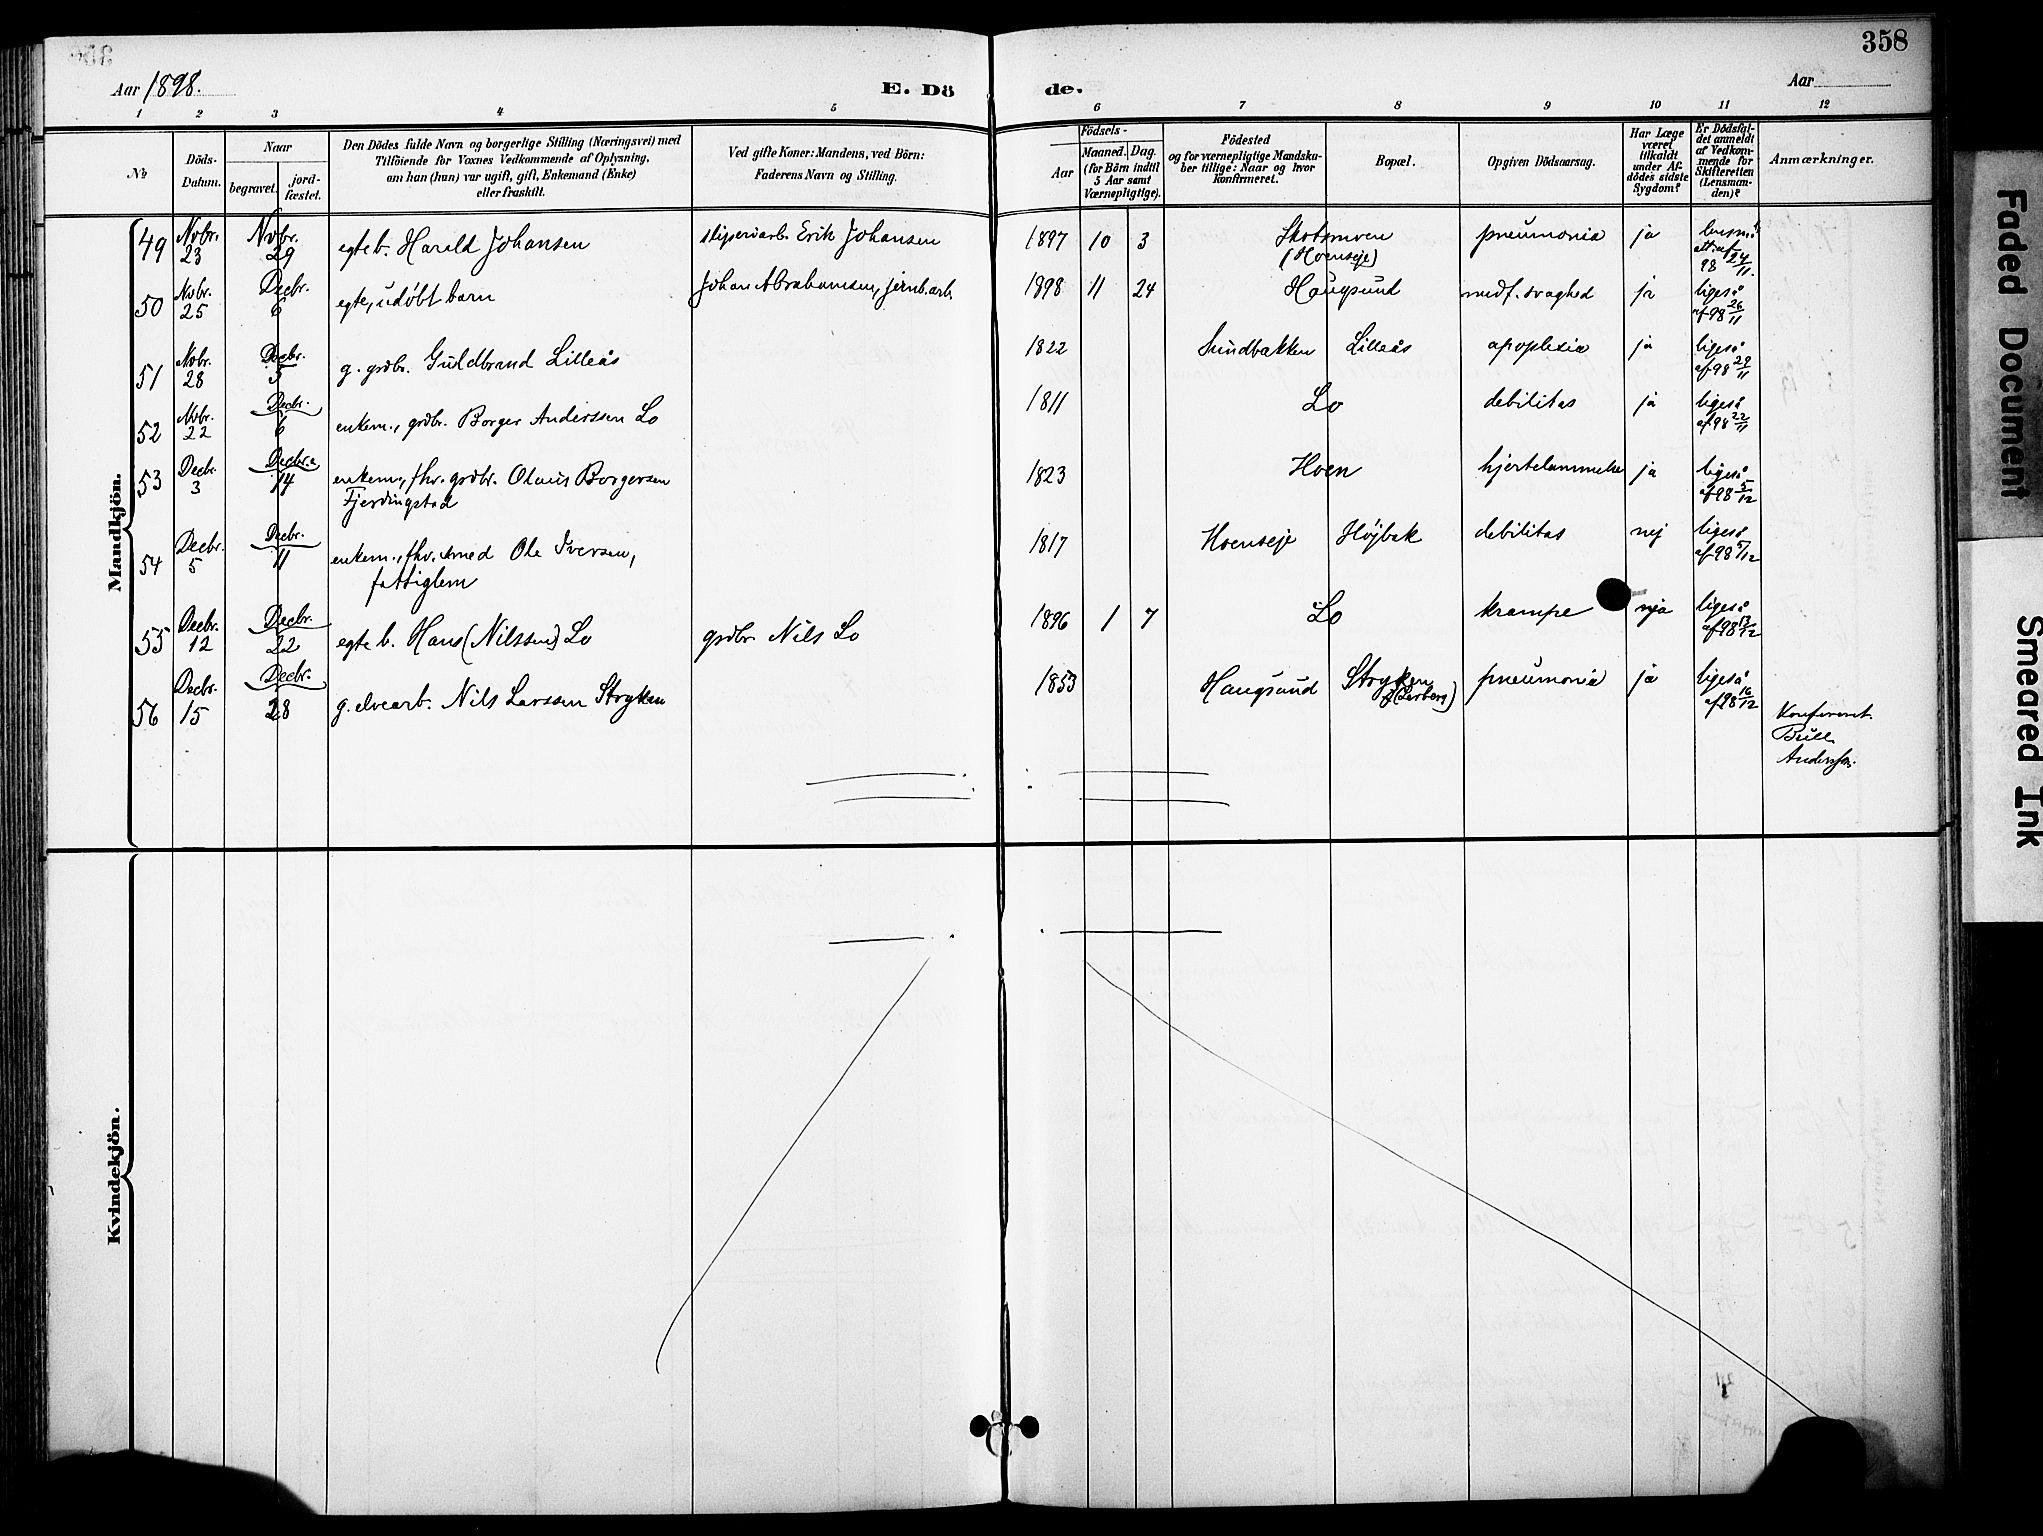 358
Aar 1898.
E. Dö de.
Aar
1 2 3 4 5 6 7 8 9 10 11 12
No
Döds-Datum.
Naar
begravet.
jord-fæstet.
Den Dödes fulde Navn og borgerlige Stilling (Næringsvei) med
Tilföiende for Voxnes Vedkommende af Oplysning,
om han (hun) var ugift, gift, Enkemand (Enke)
eller fraskilt.
Ved gifte Koner: Mandens, ved Börn:
Faderens Navn og Stilling.
Födsels-
Aar
Maaned. Dag.
(for Börn indtil
5 Aar samt
Værnepligtige).
Födested
og for værnepligtige Mandska-
ber tillige: Naar og hvor
konfirmeret.
Bopæl.
Opgiven Dödsaarsag.
Har Læge
været
tilkaldt
under Af-
dödes sidste
Sygdom?
Er Dödsfal-
det anmeldt
af Vedkom-
mende for
Skifteretten
(Lensman-
den)?
Anmærkninger.
Mandkjön.
49 Nvbr. 23 Nvbr. 29 egte b. Harald Johansen sliperiarb. Erik Johansen 1897 10 3 Skotsmoen (Hoenseje) pneumonia ja lensm. att. af 98 24/11.
50 Nvbr. 25 Decbr. 6 egte, udøbt barn Johan Abrahamsen, jernb.arb. 1898 11 24 Haugsund medf. svaghed ja ligeså af 98 26/11
51 Nvbr. 28 Decbr. 5 g. grdbr. Guldbrand Lilleås 1822 Sundbakken Lilleås apoplexia ja ligeså af 98 29/11
52 Nvbr. 22 Decbr. 6 enkem., grdbr. Borger Anderssen Lo 1811 Lo debilitas ja ligeså af 98 22/11
53 Decbr. 3 Decbr. 14 enkem., fhv. grdbr. Olaus Borgersen
Fjerdingstad 1823 Hoen hjertelammelse ja ligeså af 98 5/12
54 Decbr. 5 Decbr. 11 enkem., fhv. smed Ole Iversen,
fattiglem 1817 Hoenseje Højbak debilitas nej ligeså af 98 5/12
55 Decbr. 12 Decbr. 22 egte b. Hans (Nilssen) Lo grdbr. Nils Lo 1896 1 7 Lo krampe ja ligeså af 98 13/12
56 Decbr. 15 Decbr. 28 g. elvearb. Nils Larssen Stryken 1853 Haugsund Stryken (Lerberg) pneumonia ja ligeså af 98 16/12
Konfereret.
Kvindekjön.
Faded Document
Smeared Ink